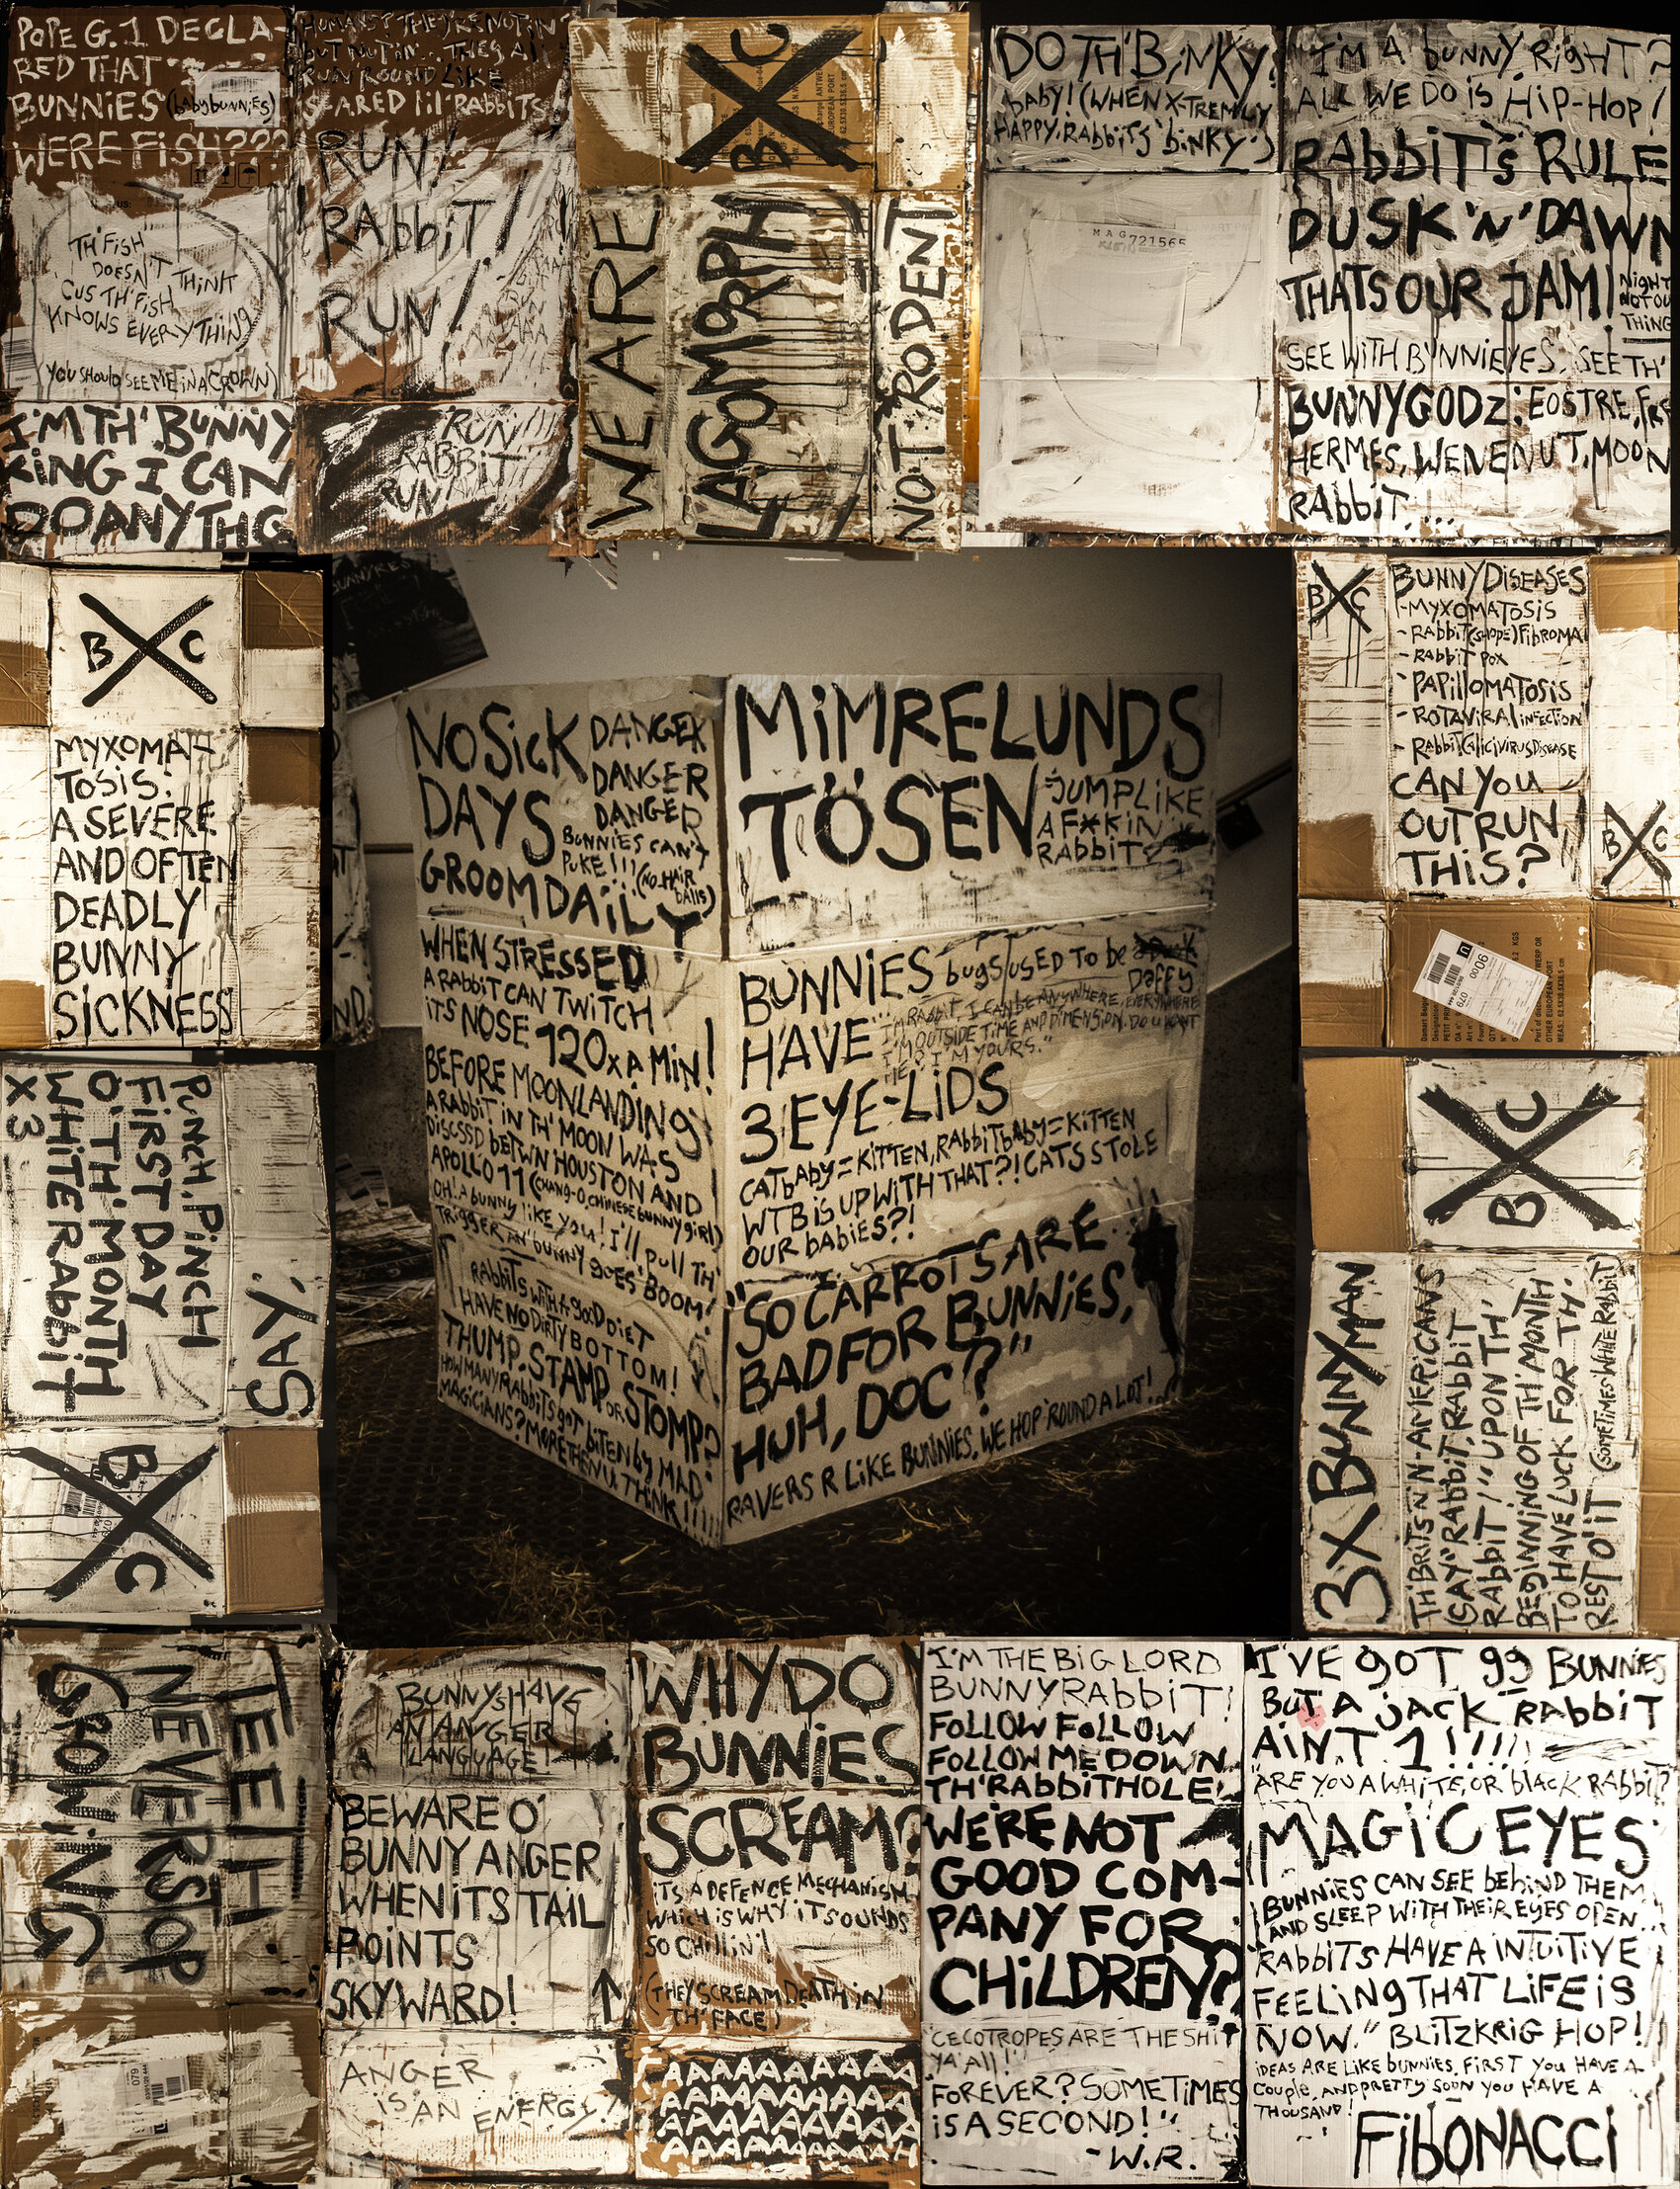 POPE G.1 DECLA-
RED THAT
BUNNIES (babybunniES)
WERE FISH???
TH'FISH
DOESN'T THINK
CUS TH'FISH
KNOWS EVERYTHING
(YOU SHOULD SEE ME IN A CROWN)
I'M TH' BUNNY
KING I CAN
DO ANYTHG
HUMANS? THEY'RE NUTIN'
bUT NUTIN'.. THEY All
RUN ROUND LIKE
SCARED lil' RAbbiTS
RUN!
RAbbiT!
RUN!
RUN
RAbbiT
RUN
B X C
WE ARE
LAGOMORPH
NOT RODENT
DO TH' BiNKY!
bAbY! (WHEN X-TREMLY
HAPPY, RAbbiTS 'biNKY')
MAG721565
I'M A bunny RiGHT?
ALL WE DO iS HiP-HOP!
RAbbiT's RULE
DUSK 'N' DAWN
THATS OUR JAM!
NiGHT
NOT OU
THiNG
SEE WiTH BUNNiEYES, SEE TH'
BUNNYGODZ: EOSTRE, FR
HERMES, WENENUT, MOON
RAbbiT....
B X C
MYXOMA-
TOSiS:
A SEVERE
AND OFTEN
DEADLY
BUNNY
SiCKNESS
NO SiCK
DAYS
DANGER
DANGER
DANGER
BUNNiES CAN'T
PUKE!!! (NO HAiR
bAllS)
GROOM DAiLY
WHEN STRESSED
A RAbbiT CAN TWiTCH
iTS NOSE 120x A MiN!
BEFORE MOONLANDiNg
A RAbbiT iN TH' MOON WAS
DiSCSSD bETWN HOUSTON AND
APOLLO 11 (CHANG-O, CHiNESE bunny giRl)
OH! A bunny liKE yOU! I'll pUll TH'
TRiggER AN' bUNNY gOES BOOM!
RAbbiTS WiTH A gOOD DiET
HAVE NO DiRTY BOTTOM!
THUMP, STAMP OR STOMP?
HOW MANY RAbbiTS gOT biTEN by MAD
MAGiCiANS? MORE THEN U THiNK!!!!
MiMRELUNDS
TÖSEN
"JUMP LiKE
A F*KiN
RAbbiT"
BUNNiES
bugS USED TO bE
DAFFY
HAVE
"I'M RAbbiT, I CAN bE ANYWHERE, EVERYWHERE
I'M OUTSiDE TiME AND DiMENSiON. DO U WANT
ME? I'M YOURS."
3 EYE-LiDS
CATbAby=KiTTEN, RAbbiTbAby=KiTTEN
WTB iS UP WiTH THAT?! CATS STOLE
OUR bAbiES?!
"SO CARROTS ARE
BAD FOR BUNNiES,
HUH, DOC?"
RAVERS R LiKE BUNNiES, WE HOP 'ROUND A LOT!
B X C
BUNNY DiSEASES
-MYXOMATOSiS
-RAbbiT (SHOPE) FibROMA
-RAbbiT POX
-PAPillOMATOSiS
-ROTAViRAl iNFECTiON
-RAbbiT CAliCiViRUS DiSEASE
CAN YOU
OUTRUN
THiS?
B X C
SAY:
PiNCH, PiNCH
FiRST DAY
O' TH' MONTH
WHiTE RAbbiT
X3
B X C
B X C
3X BUNNYMAN
TH' BRiTS 'N N-AMERiCANS
SAY "RAbbiT, RAbbiT
RAbbiT!" UPON TH'
BEGiNNiNG OF TH' MONTH
TO HAVE LUCK FOR TH'
REST O' iT (SOMETiMES WHiTE RAbbiT)
TEETH
NEVER STOP
GROWiNG
BUNNYs HAVE
AN ANGER
LANGUAGE!
BEWARE O'
BUNNY ANGER
WHEN iTS TAiL
POiNTS
SKYWARD!
ANGER
iS AN ENERGY!
WHY DO
BUNNiES
SCREAM?
iTS A DEFENCE MECHANiSM
WHiCH iS WHY iT SOUNDS
SO CHillin'!
(THEY SCREAM DEATH iN
TH' FACE)
AAAAAAAAA
AAAAAAAAA
AAAAAAAAA
AAAAAAAAAH
I'M THE BiG LORD
BUNNYRAbbiT!
FOLLOW FOLLOW
FOLLOW ME DOWN
TH'RAbbiTHOLE!
WERE NOT
GOOD COM-
PANY FOR
CHiLDREN?
CECOTROPES ARE THE SHiT
YA'All!
FOREVER? SOMETiMES
iS A SECOND!"
-W.R.
I'VE GOT 99 BUNNiES
BUT A JACK RAbbiT
AiN'T 1!!!!!
ARE YOU A WHiTE, OR blACK RAbbiT?
MAGiC EYES
BUNNiES CAN SEE bEHiND THEM
AND SLEEP WiTH THEiR EYES OPEN..
RAbbiTS HAVE A iNTUiTiVE
FEELiNg THAT LiFE iS
NOW." BLiTZKRiG HOP!
iDEAS ARE LiKE bUNNiES. FiRST YOU HAVE A
COUPlE, AND PRETTY SOON YOU HAVE A
THOUSAND!
FibONACCi